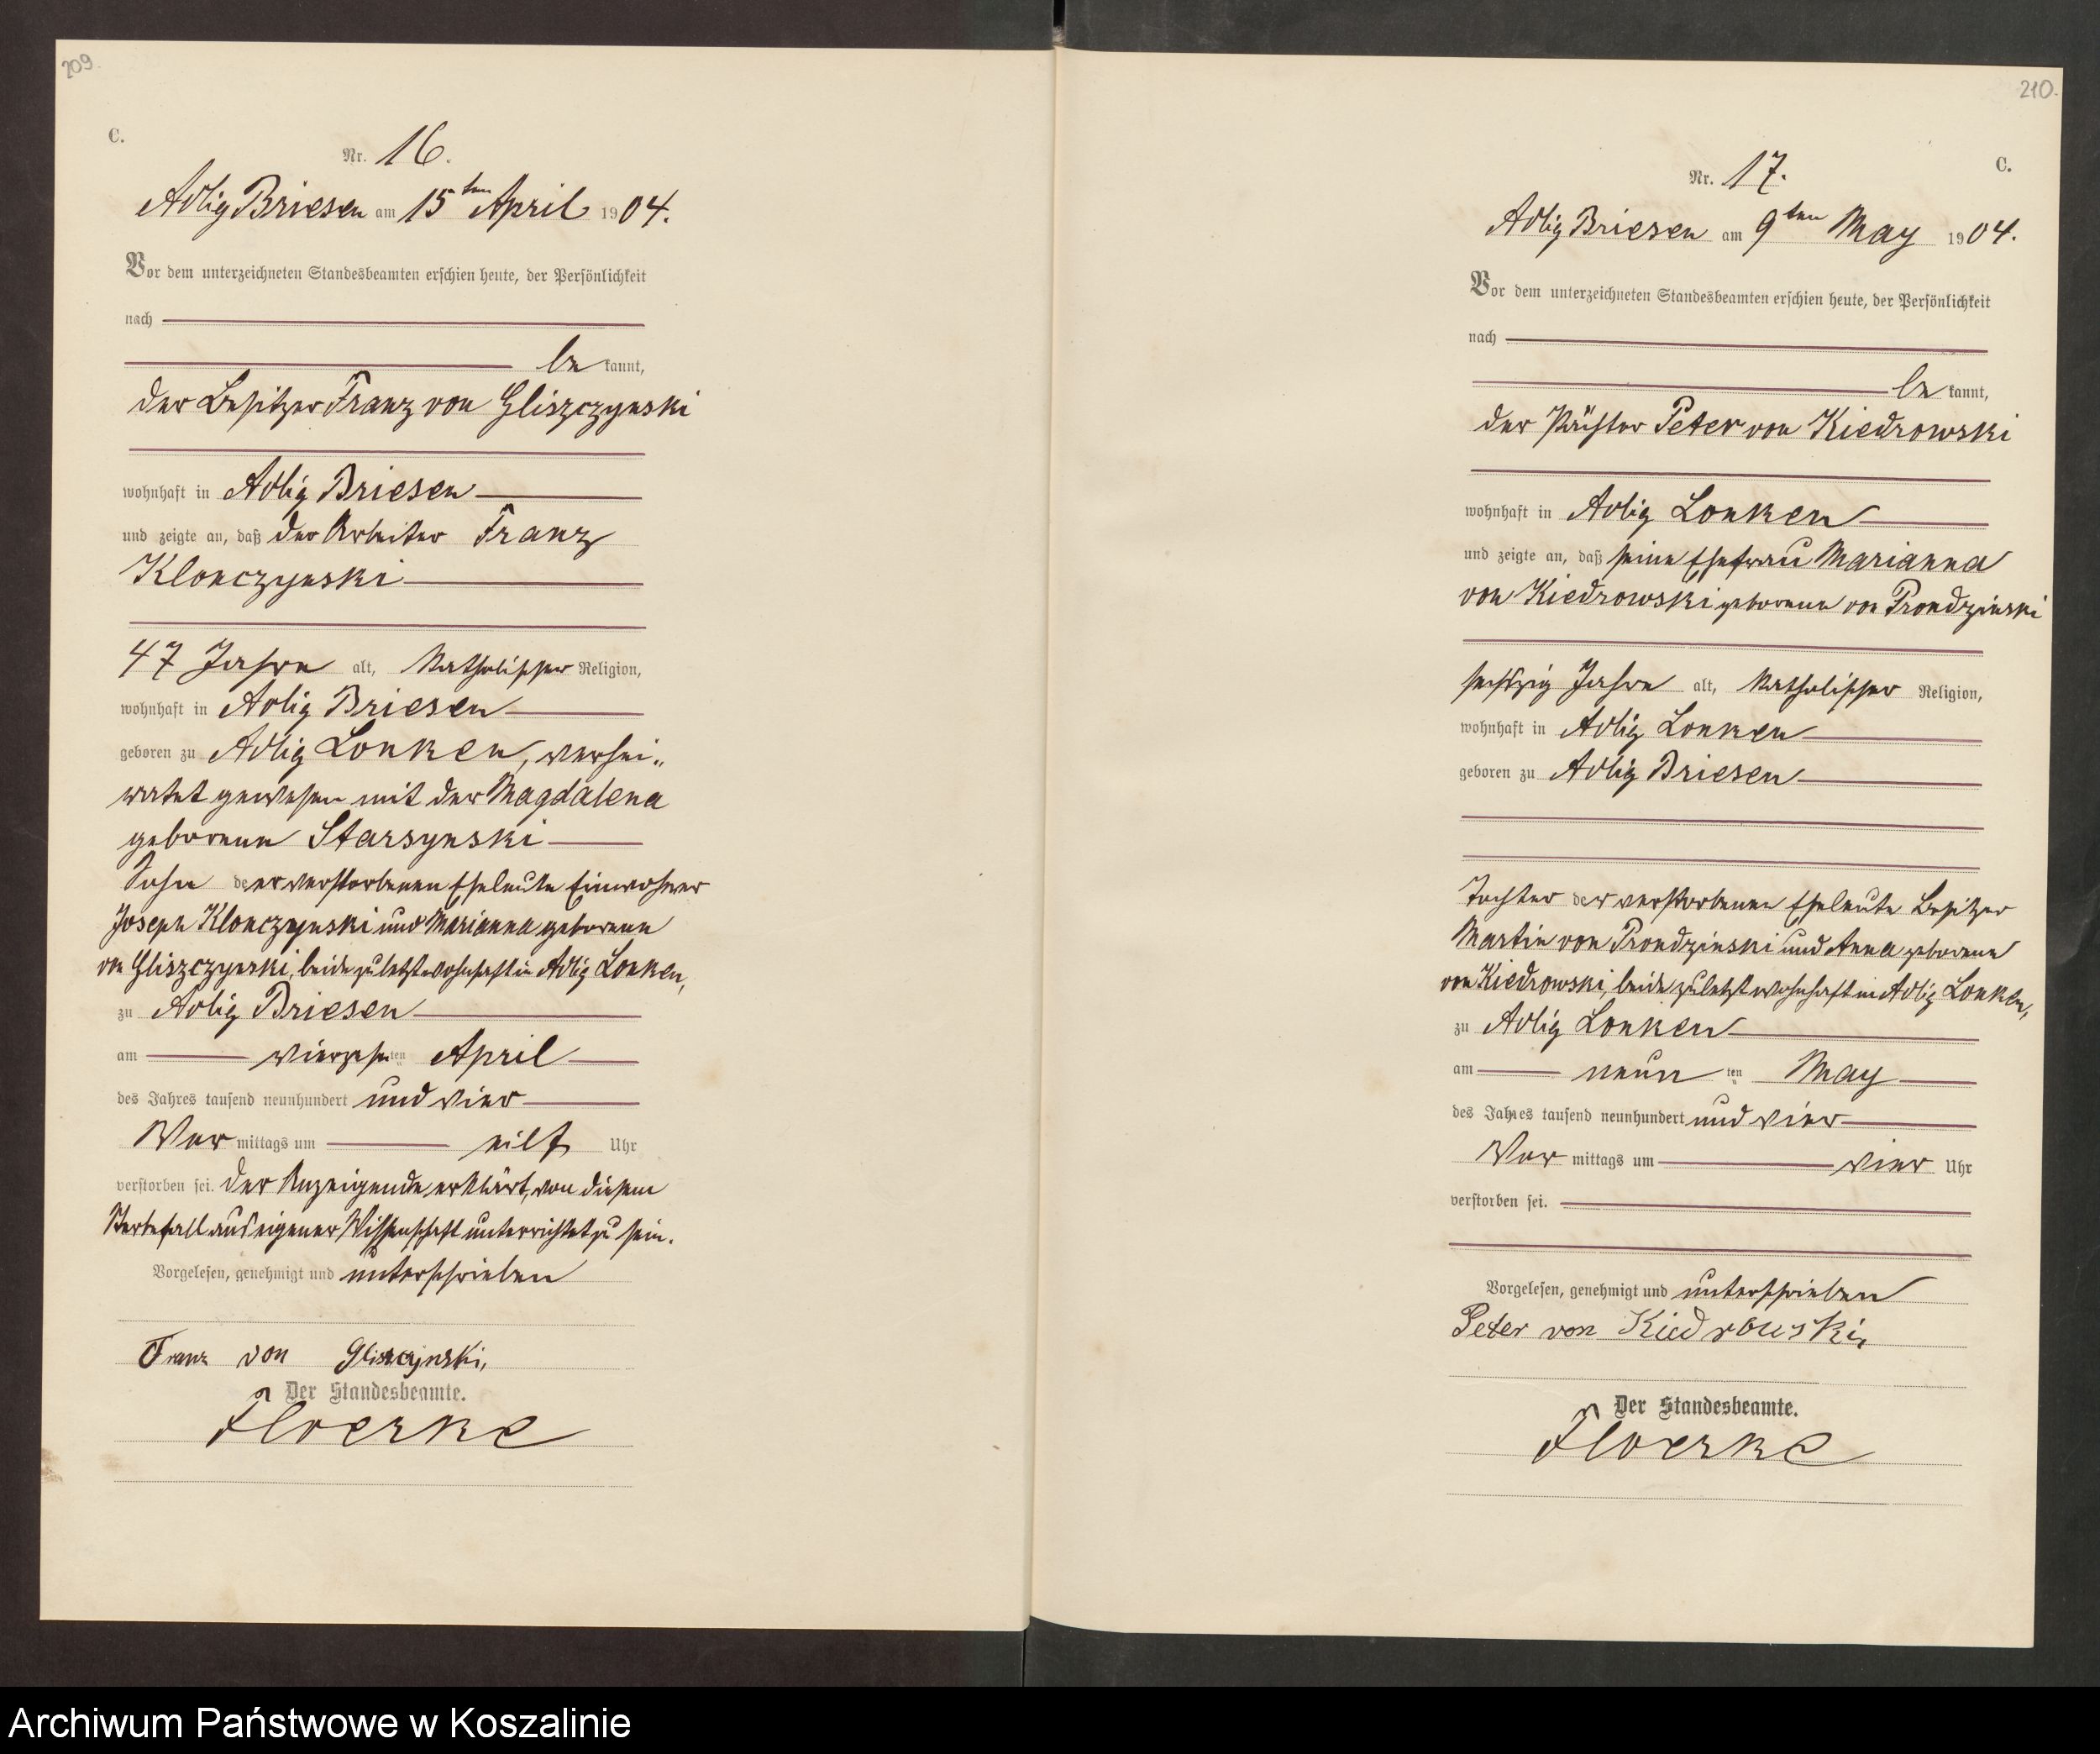 209.
C.
Nr. 16.
Adlig Briesen am 15ten April 1904.
Vor dem unterzeichneten Standesbeamten erschien heute, der Persönlichkeit
nach
be kannt,
der Besitzer Franz von Gliszczynski
wohnhaft in Adlig Briesen
und zeigte an, daß der Arbeiter Franz
Klonczynski
47 Jahre alt, katholischer Religion,
wohnhaft in Adlig Briesen
geboren zu Adlig Lonken, verhei„
ratet gewesen mit der Magdalena
geborenen Starsynski
Sohn der verstorbenen Eheleute Einwohner
Joseph Klonczynski und Marianna geborenen
von Gliszczynski, beide zuletzt wohnhaft in Adlig Lonken,
zu Adlig Briesen
am vierzehnten April
des Jahres tausend neunhundert und vier
Vor mittags um eilf Uhr
verstorben sei. Der Anzeigende erklärt, von diesem
Sterbefall aus eigener Wissenschaft unterrichtet zu sein.
Vorgelesen, genehmigt und unterschrieben
Franz von Gliszczynski,
Der Standesbeamte.
Floerke
210.
C.
Nr. 17.
Adlig Briesen am 9ten May 1904.
Vor dem unterzeichneten Standesbeamten erschien heute, der Persönlichkeit
nach
be kannt,
der Pächter Peter von Kiedrowski
wohnhaft in Adlig Lonken
und zeigte an, daß seine Ehefrau Marianna
von Kiedrowski geborenen von Prondzinski
sechszig Jahre alt, katholischer Religion,
wohnhaft in Adlig Lonken
geboren zu Adlig Briesen
Tochter der verstorbenen Eheleute Besitzer
Martin von Prondzinski und Anna geborenen
von Kiedrowski, beide zuletzt wohnhaft in Adlig Lonken,
zu Adlig Lonken
am neun ten May
des Jahres tausend neunhundert und vier
Vor mittags um vier Uhr
verstorben sei.
Vorgelesen, genehmigt und unterschrieben
Peter von Kiedrowski,
Der Standesbeamte.
Floerke
Archiwum Państwowe w Koszalinie